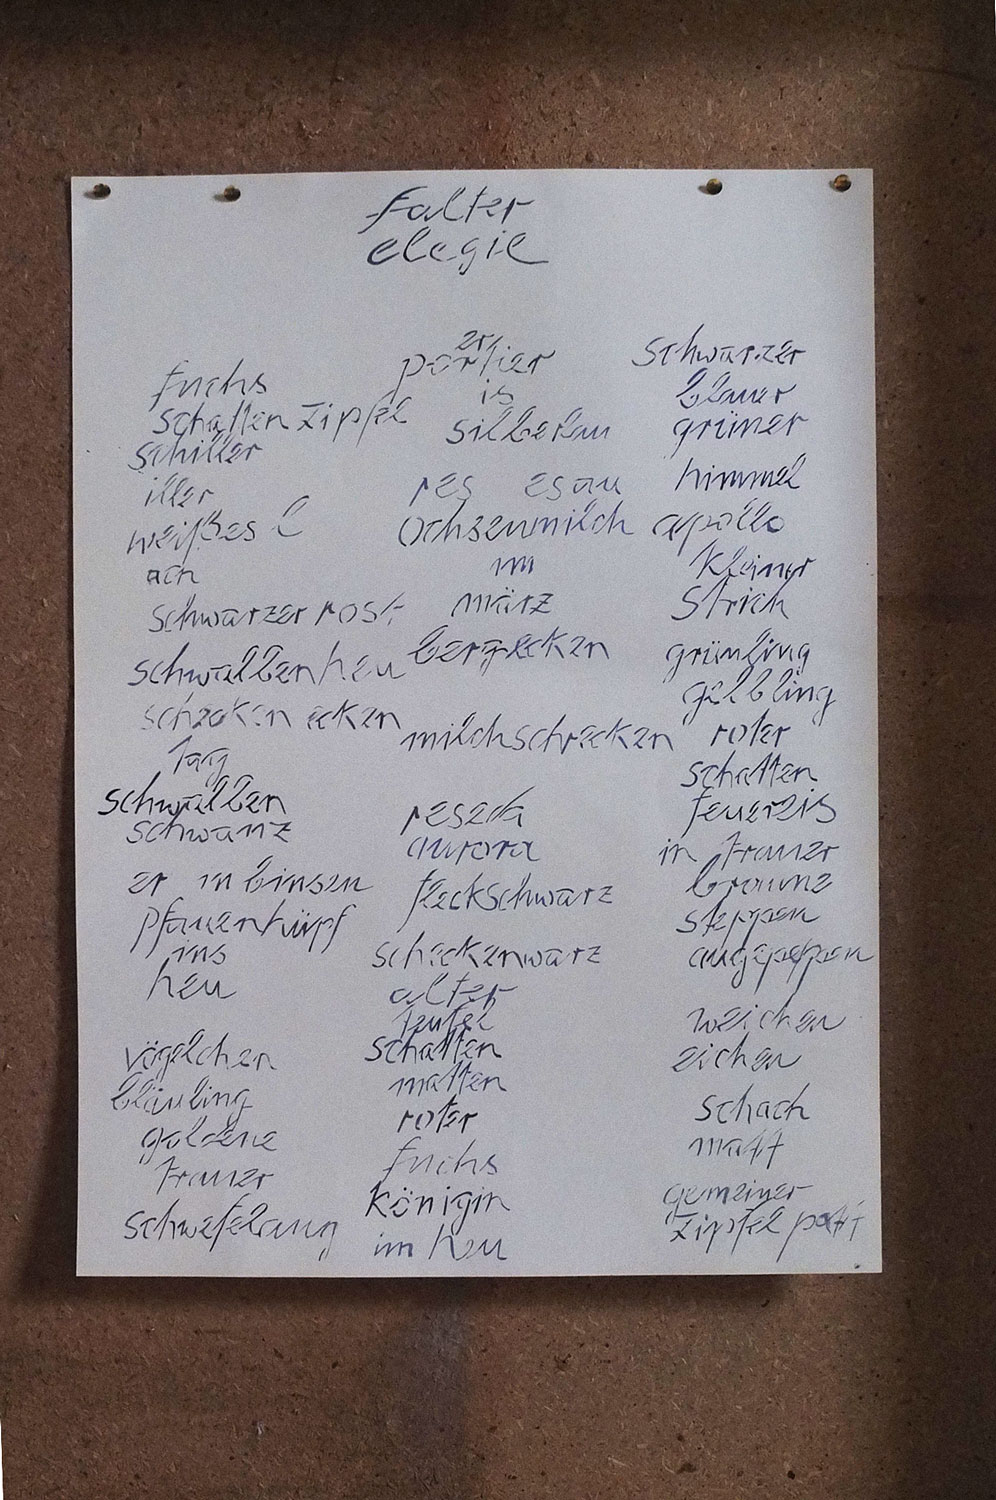 falter
elegie
fuchs
schatten zipfel
schiller
iller
weißes l
ach
schwarzer rost
schwalben heu
schecken ecken
tag
schwalben
schwanz
er in binsen
pfauenhüpf
ins
heu
vögelchen
bläuling
goldene
trauer
schwefelaug
er
portier
is
silberlau
res esau
ochsenmilch
im
märz
bergecken
milchschrecken
reseda
aurora
fleckschwarz
scheckenwarz
alter
teufel
schatten
matten
roter
fuchs
königin
im heu
schwarzer
blauer
grüner
himmel
apollo
kleiner
strich
grünling
gelbling
roter
schatten
feuereis
in trauer
braune
steppen
augepeppen
weichen
eichen
schach
matt
gemeiner
zipfel patt